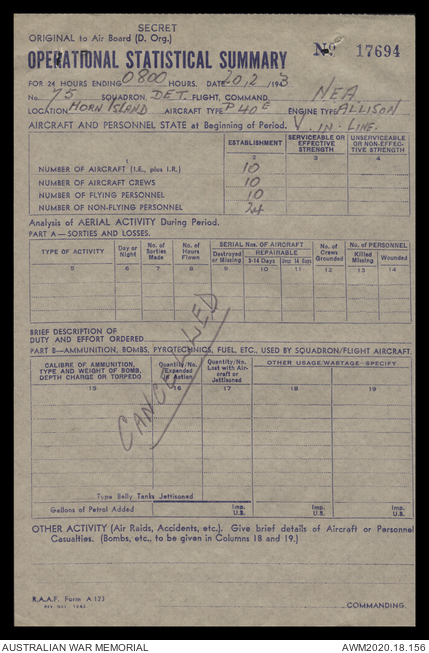 SECRET
ORIGINAL to Air Board (D. Org.)
OPERATIONAL STATISTICAL SUMMARY
No 17694
FOR 24 HOURS ENDING 0800 HOURS. DATE 20, 2 /1943
No. 75 SQUADRON DET. FLIGHT, COMMAND NEA
LOCATION HORN ISLAND AIRCRAFT TYPE P 40 E ENGINE TYPE ALLISON
AIRCRAFT AND PERSONNEL STATE at Beginning of Period. V. IN-LINE.
ESTABLISHMENT SERVICEABLE OR EFFECTIVE STRENGTH UNSERVICEABLE OR NON-EFFECTIVE STRENGTH
1 2 3 4
NUMBER OF AIRCRAFT (I.E., plus I.R.) 10
NUMBER OF AIRCRAFT CREWS 10
NUMBER OF FLYING PERSONNEL 10
NUMBER OF NON-FLYING PERSONNEL 24
Analysis of AERIAL ACTIVITY During Period.
PART A—SORTIES AND LOSSES.
TYPE OF ACTIVITY Day or Night No. of Sorties Made No. of Hours Flown SERIAL Nos. OF AIRCRAFT Destroyed or Missing REPAIRABLE 3-14 Days Over 14 days No. of Crews Grounded No. of PERSONNEL Killed Missing Wounded
5 6 7 8 9 10 11 12 13 14
BRIEF DESCRIPTION OF
DUTY AND EFFORT ORDERED
PART B—AMMUNITION, BOMBS, PYROTECHNICS, FUEL, ETC., USED BY SQUADRON/FLIGHT AIRCRAFT.
CALIBRE OF AMMUNITION, TYPE AND WEIGHT OF BOMB, DEPTH CHARGE OR TORPEDO Quantity/No. Expended in Action Quantity/No. Lost with Aircraft or Jettisoned OTHER USAGE/WASTAGE—SPECIFY
15 16 17 18 19
CANCELLED
Type Belly Tanks Jettisoned
Gallons of Petrol Added Imp. U.S. Imp. U.S. Imp. U.S.
OTHER ACTIVITY (Air Raids, Accidents, etc.). Give brief details of Aircraft or Personnel
Casualties. (Bombs, etc., to be given in Columns 18 and 19.)
R.A.A.F. Form A 123
COMMANDING.
AUSTRALIAN WAR MEMORIAL AWM2020.18.156